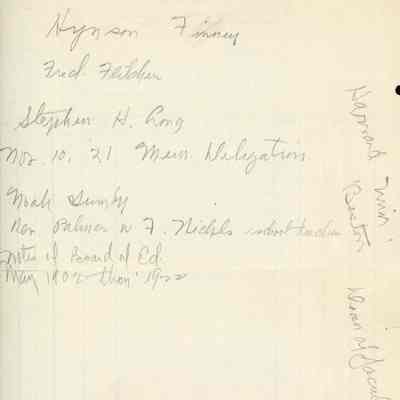 Hynson Finney
Fred Fletcher
Stephen H. Long
Nov. 10, '21. Mem. Delegation
Noah
Rev. Palmer w F. Nickels school teacher
Notes of Board of Ed.
May 1902 - thru' 1922
Harvard Univ.
Boston
Dean of Facul